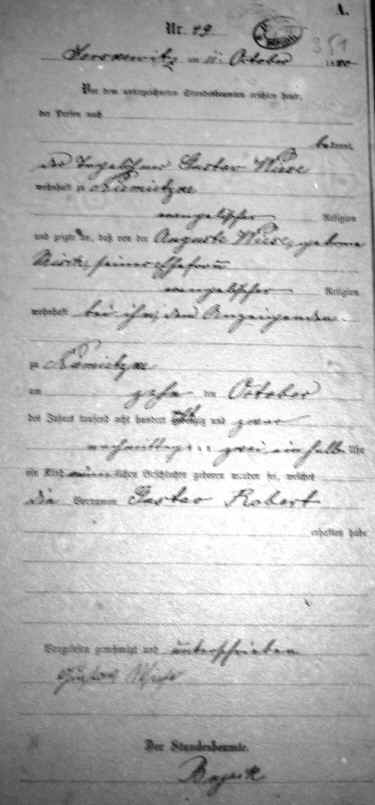 A.
Nr. 49
am 11 October 18
Vor dem unterzeichneten Standesbeamten erschien heute,
der Person nach
bekannt,
der Tagelöhner Gustav Wiese
wohnhaft zu
evangelischer Religion
und zeigte an, daß von der Auguste Wiese, geborne
seiner Ehefrau
evangelischer Religion
wohnhaft bei ihm, dem Anzeigenden
zu
am zehn ten October
des Jahres tausend acht hundert achtzig und zwar
nachmittags zwei einhalb Uhr
ein Kind männlichen Geschlechts geboren worden sei, welches
die Vornamen Gustav Robert
erhalten habe
Vorgelesen, genehmigt und unterschrieben
Gustav Wiese
Der Standesbeamte.